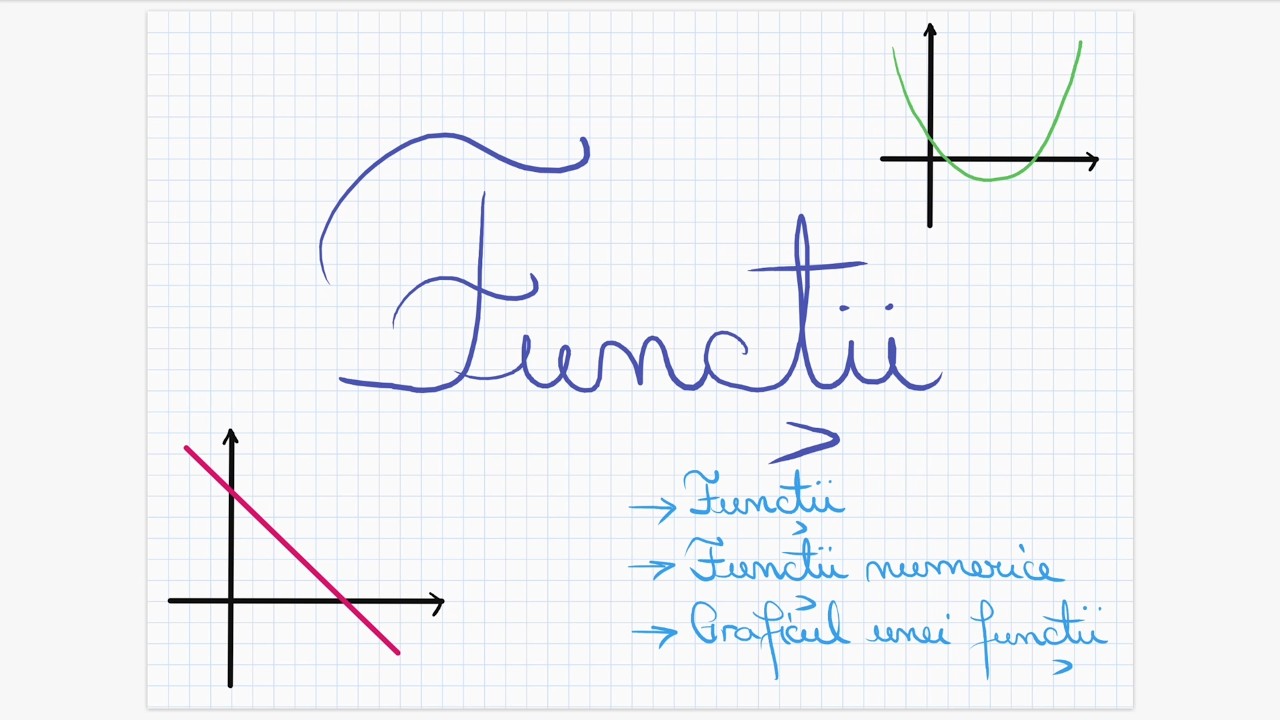 Funcții
→ Funcții
→ Funcții numerice
→ Graficul unei funcții